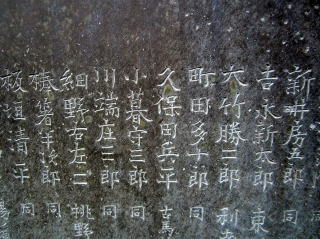 新井房五郎 同
吉永新太郎 東
大竹勝二郎 利
町田多十郎 同
久保田兵平 古馬
小暮守三郎 同
川端庄三郎 同
細野右左二 桃野
椿 次郎 同
板垣清平